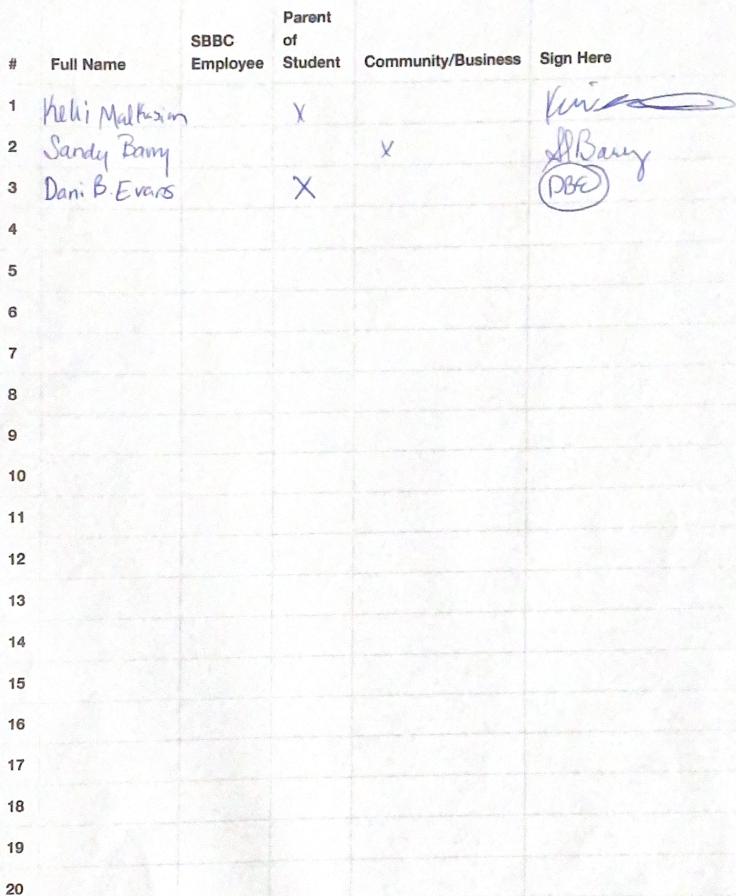 # Full Name SBBC Employee Parent of Student Community/Business Sign Here
1 Malkasian X
2 Sandy Barry X SBarry
3 Dani B. Evans X DBE
4
5
6
7
8
9
10
11
12
13
14
15
16
17
18
19
20